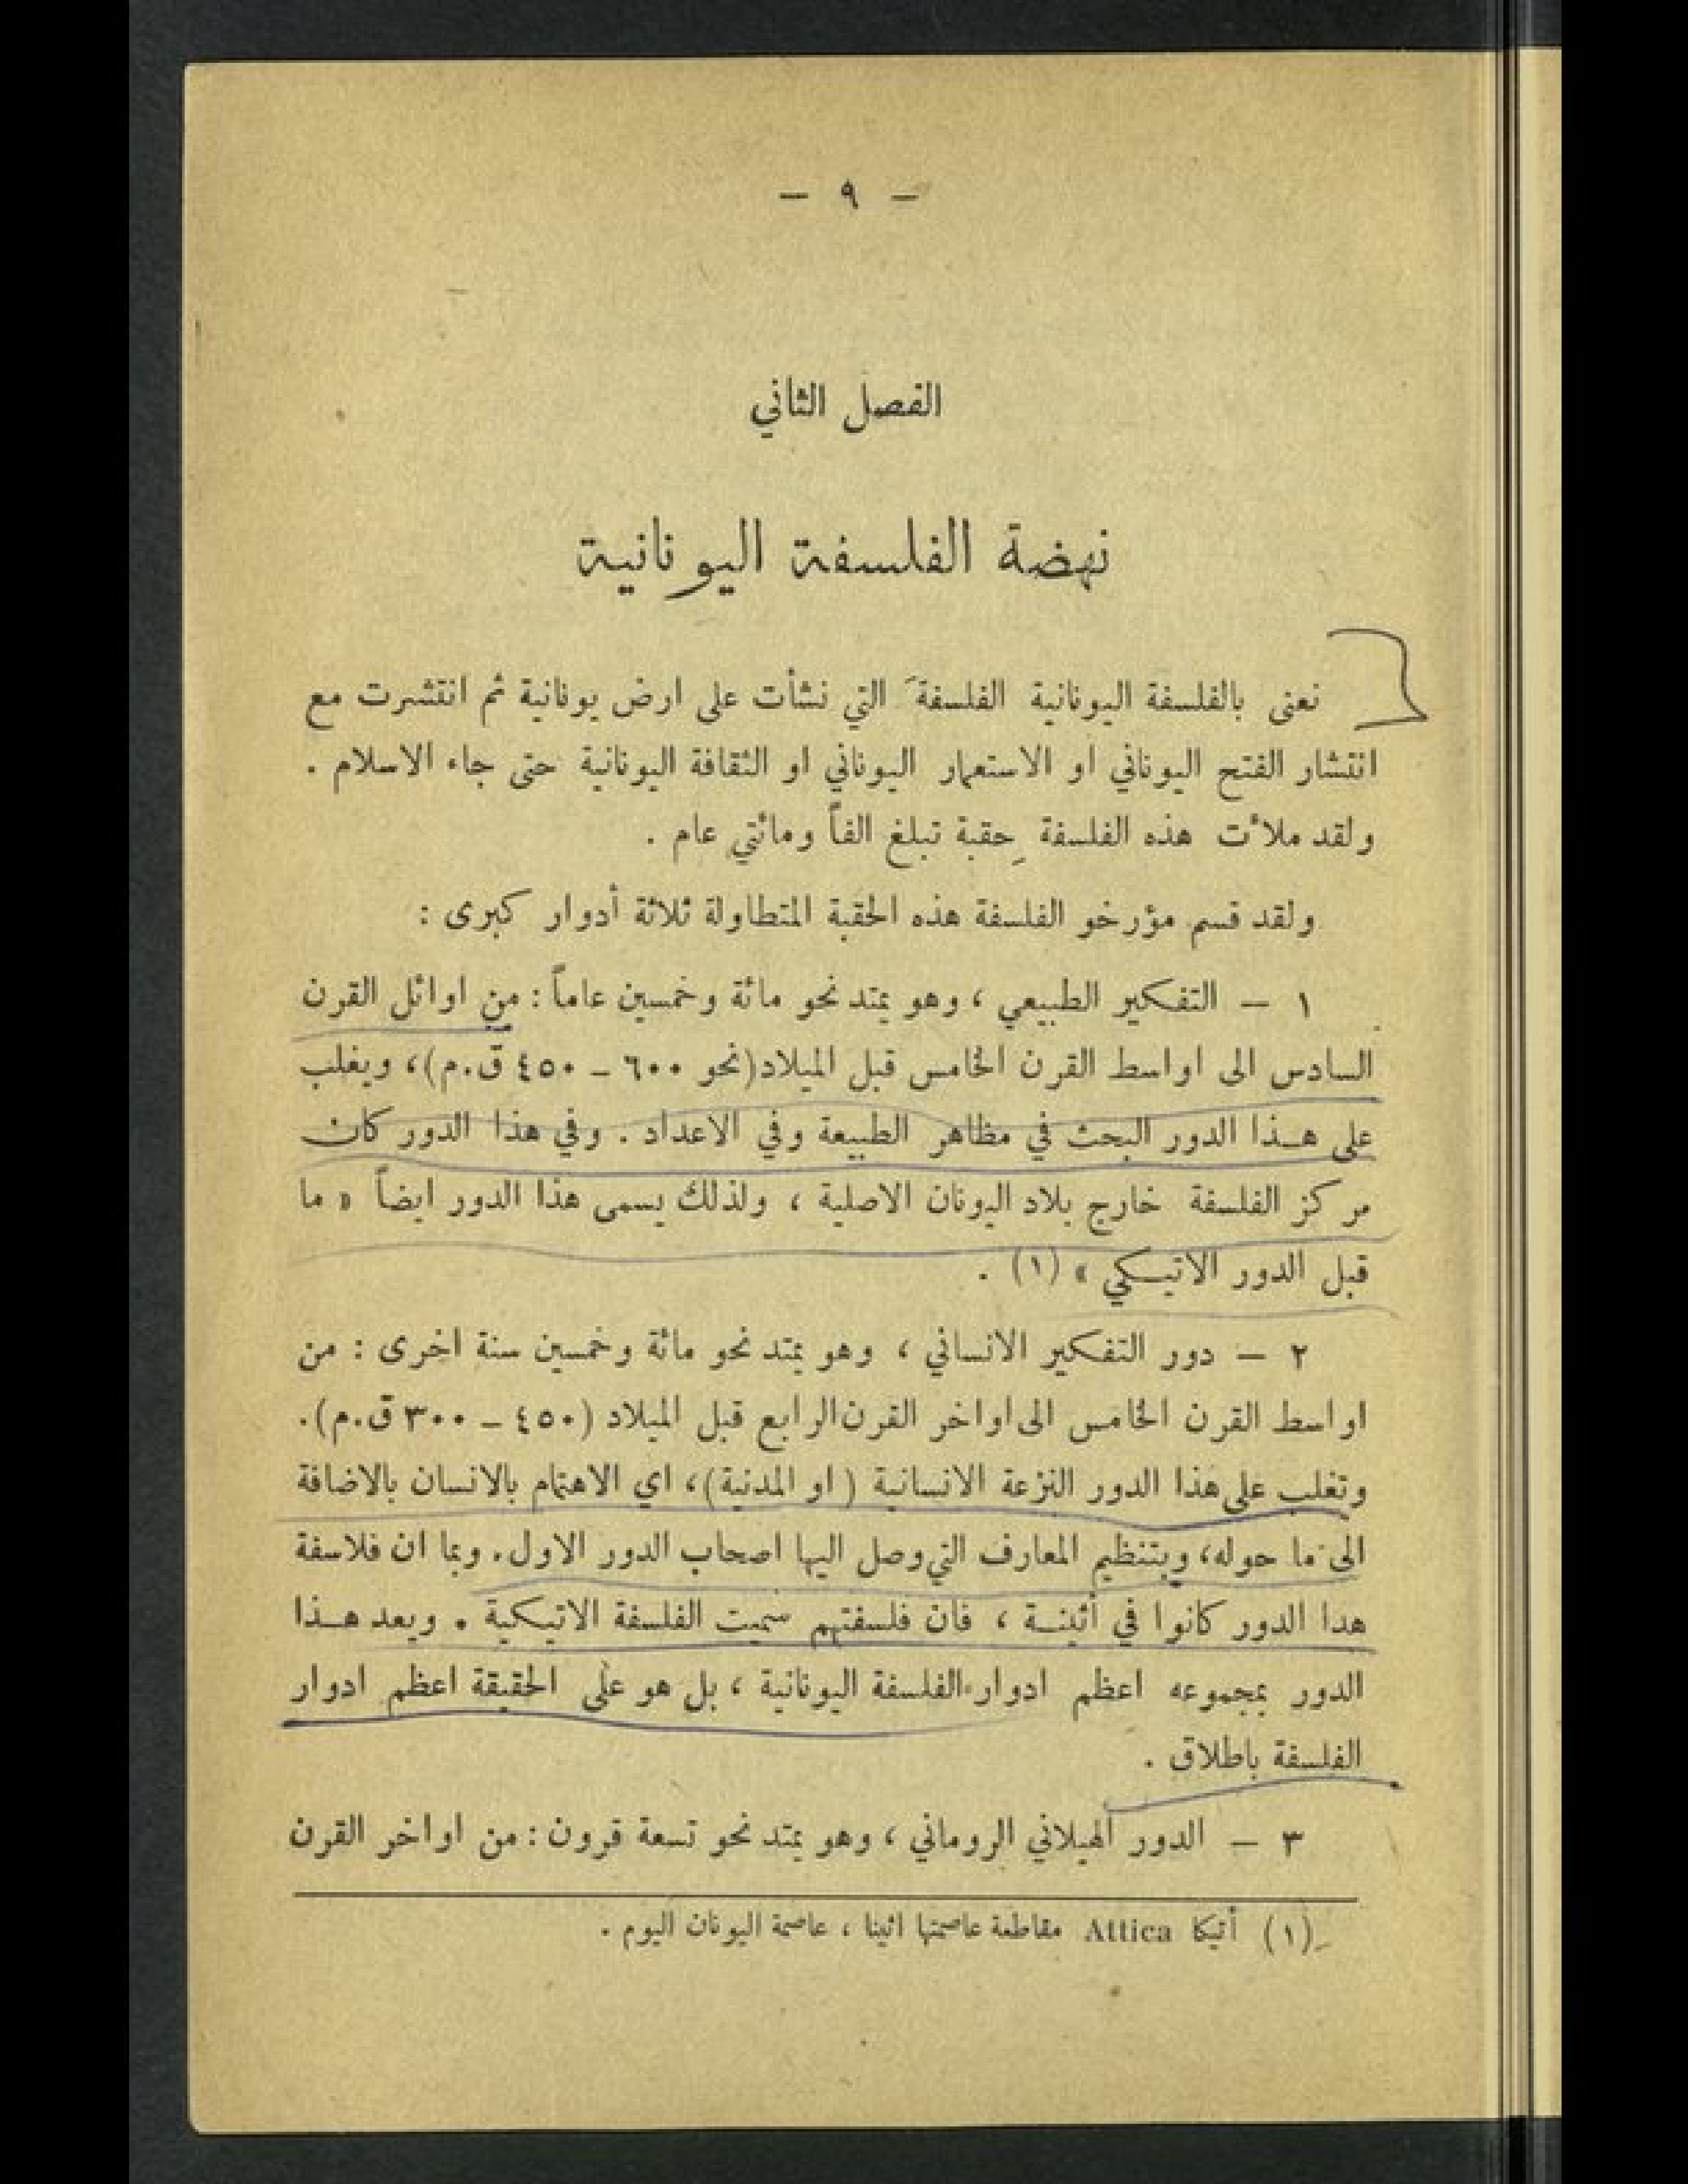 — ٩ —
الفصل الثاني
نهضة الفلسفة اليونانية
نعني بالفلسفة اليونانية الفلسفةَ التي نشأت على ارض يونانية ثم انتشرت مع
انتشار الفتح اليوناني او الاستعمار اليوناني او الثقافة اليونانية حتى جاء الاسلام .
ولقد ملأت هذه الفلسفة حِقبة تبلغ الفاً ومائتي عام .
ولقد قسم مؤرخو الفلسفة هذه الحقبة المتطاولة ثلاثة أدوار كبرى :
١ — التفكير الطبيعي ، وهو يمتد نحو مائة وخمسين عاماً : من اوائل القرن
السادس الى اواسط القرن الخامس قبل الميلاد (نحو ٦٠٠ – ٤٥٠ ق.م)، ويغلب
على هـذا الدور البحث في مظاهر الطبيعة وفي الاعداد . وفي هذا الدور كان
مركز الفلسفة خارج بلاد اليونان الاصلية ، ولذلك يسمى هذا الدور ايضاً « ما
قبل الدور الاتيـكي » (١) .
٢ — دور التفكير الانساني ، وهو يمتد نحو مائة وخمسين سنة اخرى : من
اواسط القرن الخامس الى اواخر القرن الرابع قبل الميلاد (٤٥٠ – ٣٠٠ ق.م).
وتغلب على هذا الدور النزعة الانسانية ( او المدنية)، اي الاهتمام بالانسان بالاضافة
الى ما حوله، وبتنظيم المعارف التي وصل اليها اصحاب الدور الاول. وبما ان فلاسفة
هدا الدور كانوا في أثينـة ، فان فلسفتهم سميت الفلسفة الاتيكية . ويعد هـذا
الدور بمجموعه اعظم ادوار الفلسفة اليونانية ، بل هو على الحقيقة اعظم ادوار
الفلسفة باطلاق .
٣ — الدور الهيلاني الروماني ، وهو يمتد نحو تسعة قرون : من اواخر القرن
(١) أتيكا Attica مقاطعة عاصمتها اثينا ، عاصمة اليونان اليوم .